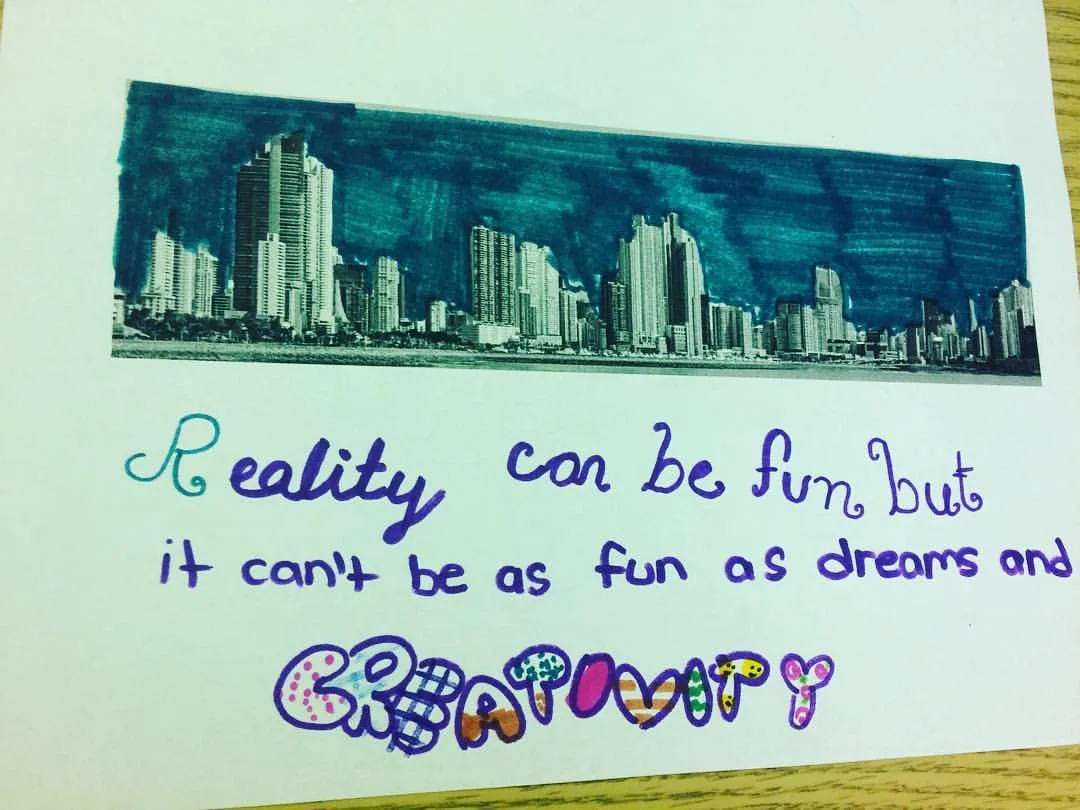 Reality can be fun but
it can't be as fun as dreams and
CREATIVITY